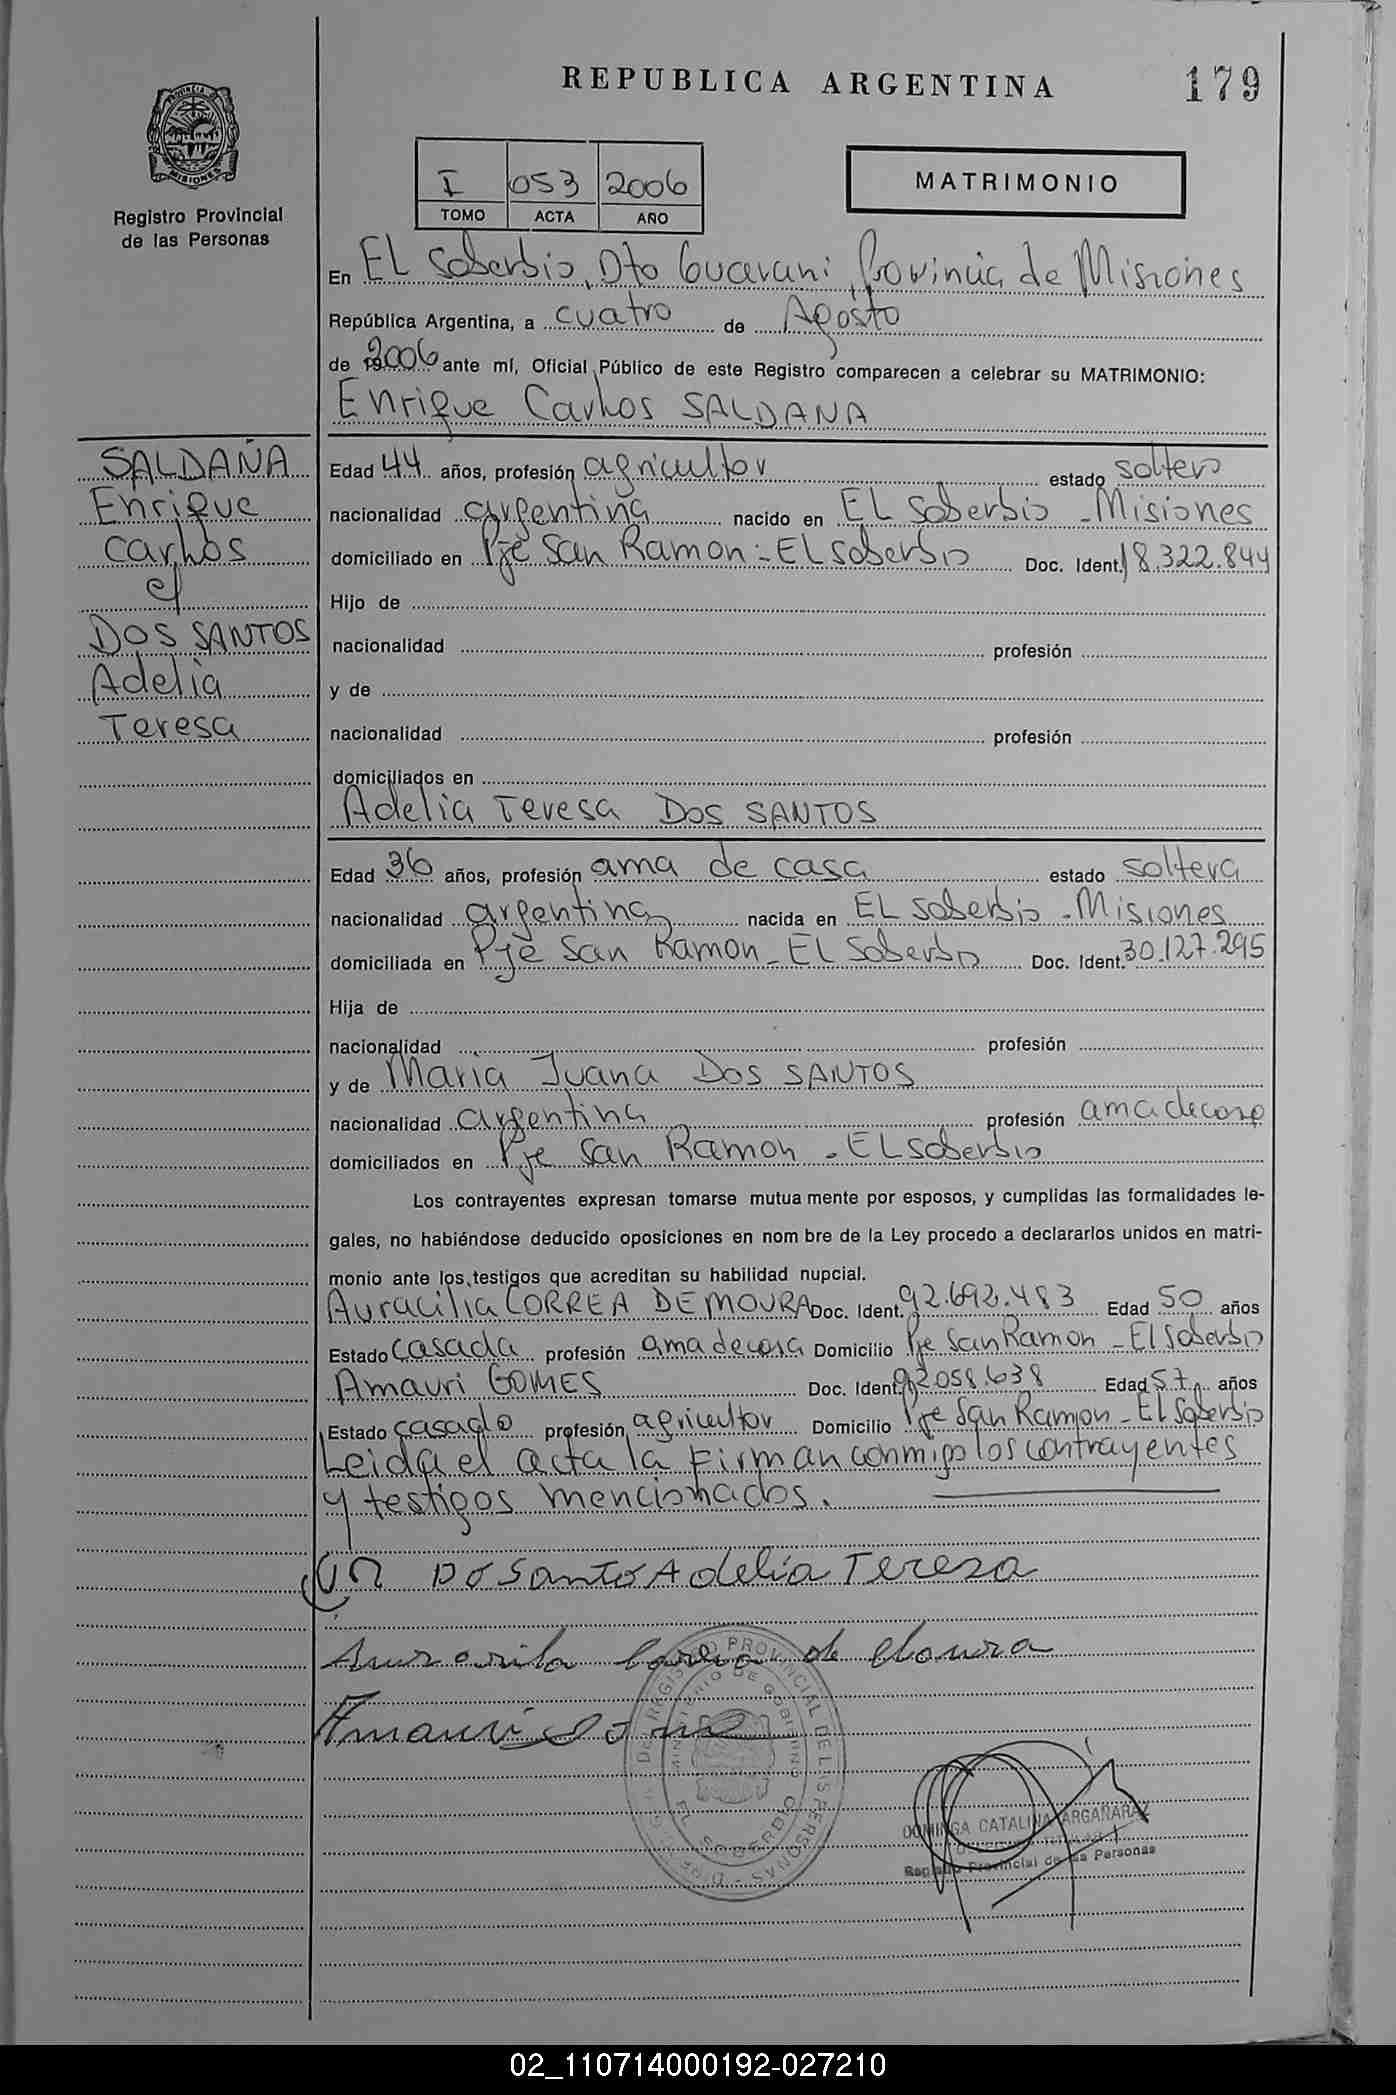 REPUBLICA ARGENTINA
179
PROVINCIA DE MISIONES
Registro Provincial
de las Personas
I 053 2006
TOMO ACTA AÑO
MATRIMONIO
En EL Soberbio, Dto Guarani, Provincia de Misiones
República Argentina, a cuatro de Agosto
de 2006 ante mí, Oficial Público de este Registro comparecen a celebrar su MATRIMONIO:
Enrique Carlos SALDANA
SALDAÑA
Enrique
Carlos
c/
DOS SANTOS
Adelia
Teresa
Edad 44 años, profesión agricultor estado soltero
nacionalidad argentina nacido en EL Soberbio - Misiones
domiciliado en Pje San Ramon - EL Soberbio Doc. Ident. 18.322.844
Hijo de
nacionalidad profesión
y de
nacionalidad profesión
domiciliados en
Adelia Teresa DOS SANTOS
Edad 36 años, profesión ama de casa estado soltera
nacionalidad argentina nacida en EL Soberbio - Misiones
domiciliada en Pje San Ramon - EL Soberbio Doc. Ident. 30.127.295
Hija de
nacionalidad profesión
y de Maria Juana DOS SANTOS
nacionalidad argentina profesión ama de casa
domiciliados en Pje San Ramon - EL Soberbio
Los contrayentes expresan tomarse mutua mente por esposos, y cumplidas las formalidades le-
gales, no habiéndose deducido oposiciones en nom bre de la Ley procedo a declararlos unidos en matri-
monio ante los testigos que acreditan su habilidad nupcial.
Auracilia CORREA DE MOURA Doc. Ident. 92.692.483 Edad 50 años
Estado casada profesión ama de casa Domicilio Pje San Ramon - El Soberbio
Amauri GOMES Doc. Ident. 92058.638 Edad 57 años
Estado casado profesión agricultor Domicilio Pje San Ramon - El Soberbio
Leida el acta la Firman conmigo los contrayentes
y testigos mencionados.
Do Santo Adelia Teresa
Correa de Moura
Amauri Gomes
DIRE. GRAL. DEL REGISTRO PROVINCIAL DE LAS PERSONAS
MINISTERIO DE GOBIERNO
EL SOBERBIO
DOMINGA CATALINA ARGAÑARAZ
Registro Provincial de las Personas
02_110714000192-027210